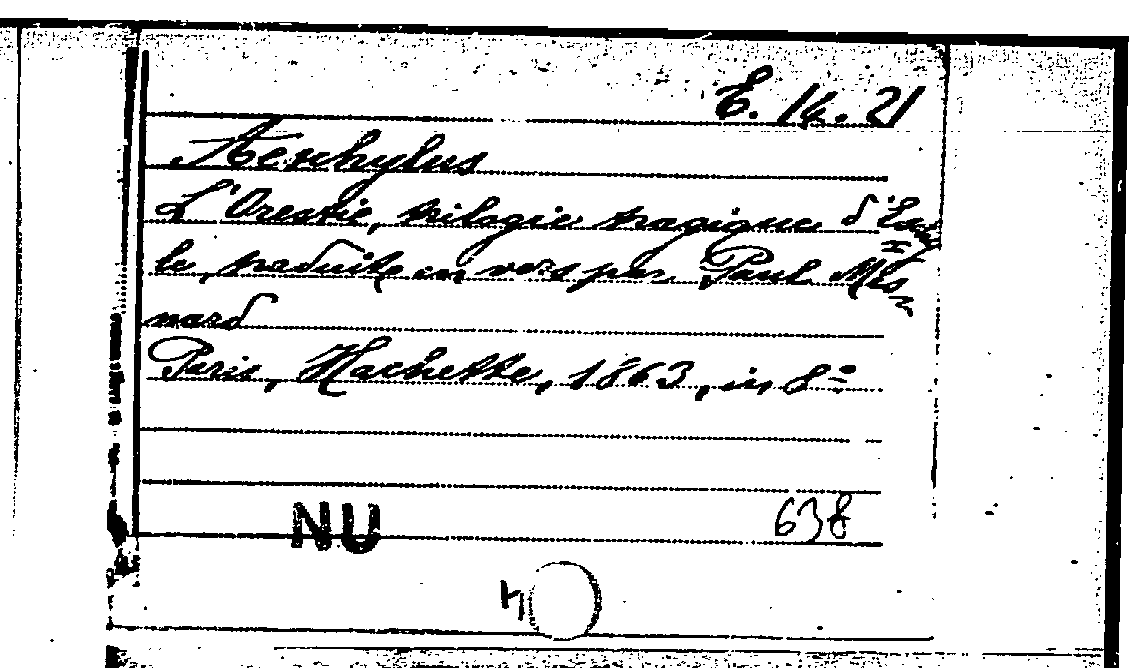 E. 14. 21
Aeschylus
L'Orestie, trilogie tragique d'Eschy
le, traduite en vers par Paul Més
nard
Paris, Hachette, 1863, in 8º
NU
638